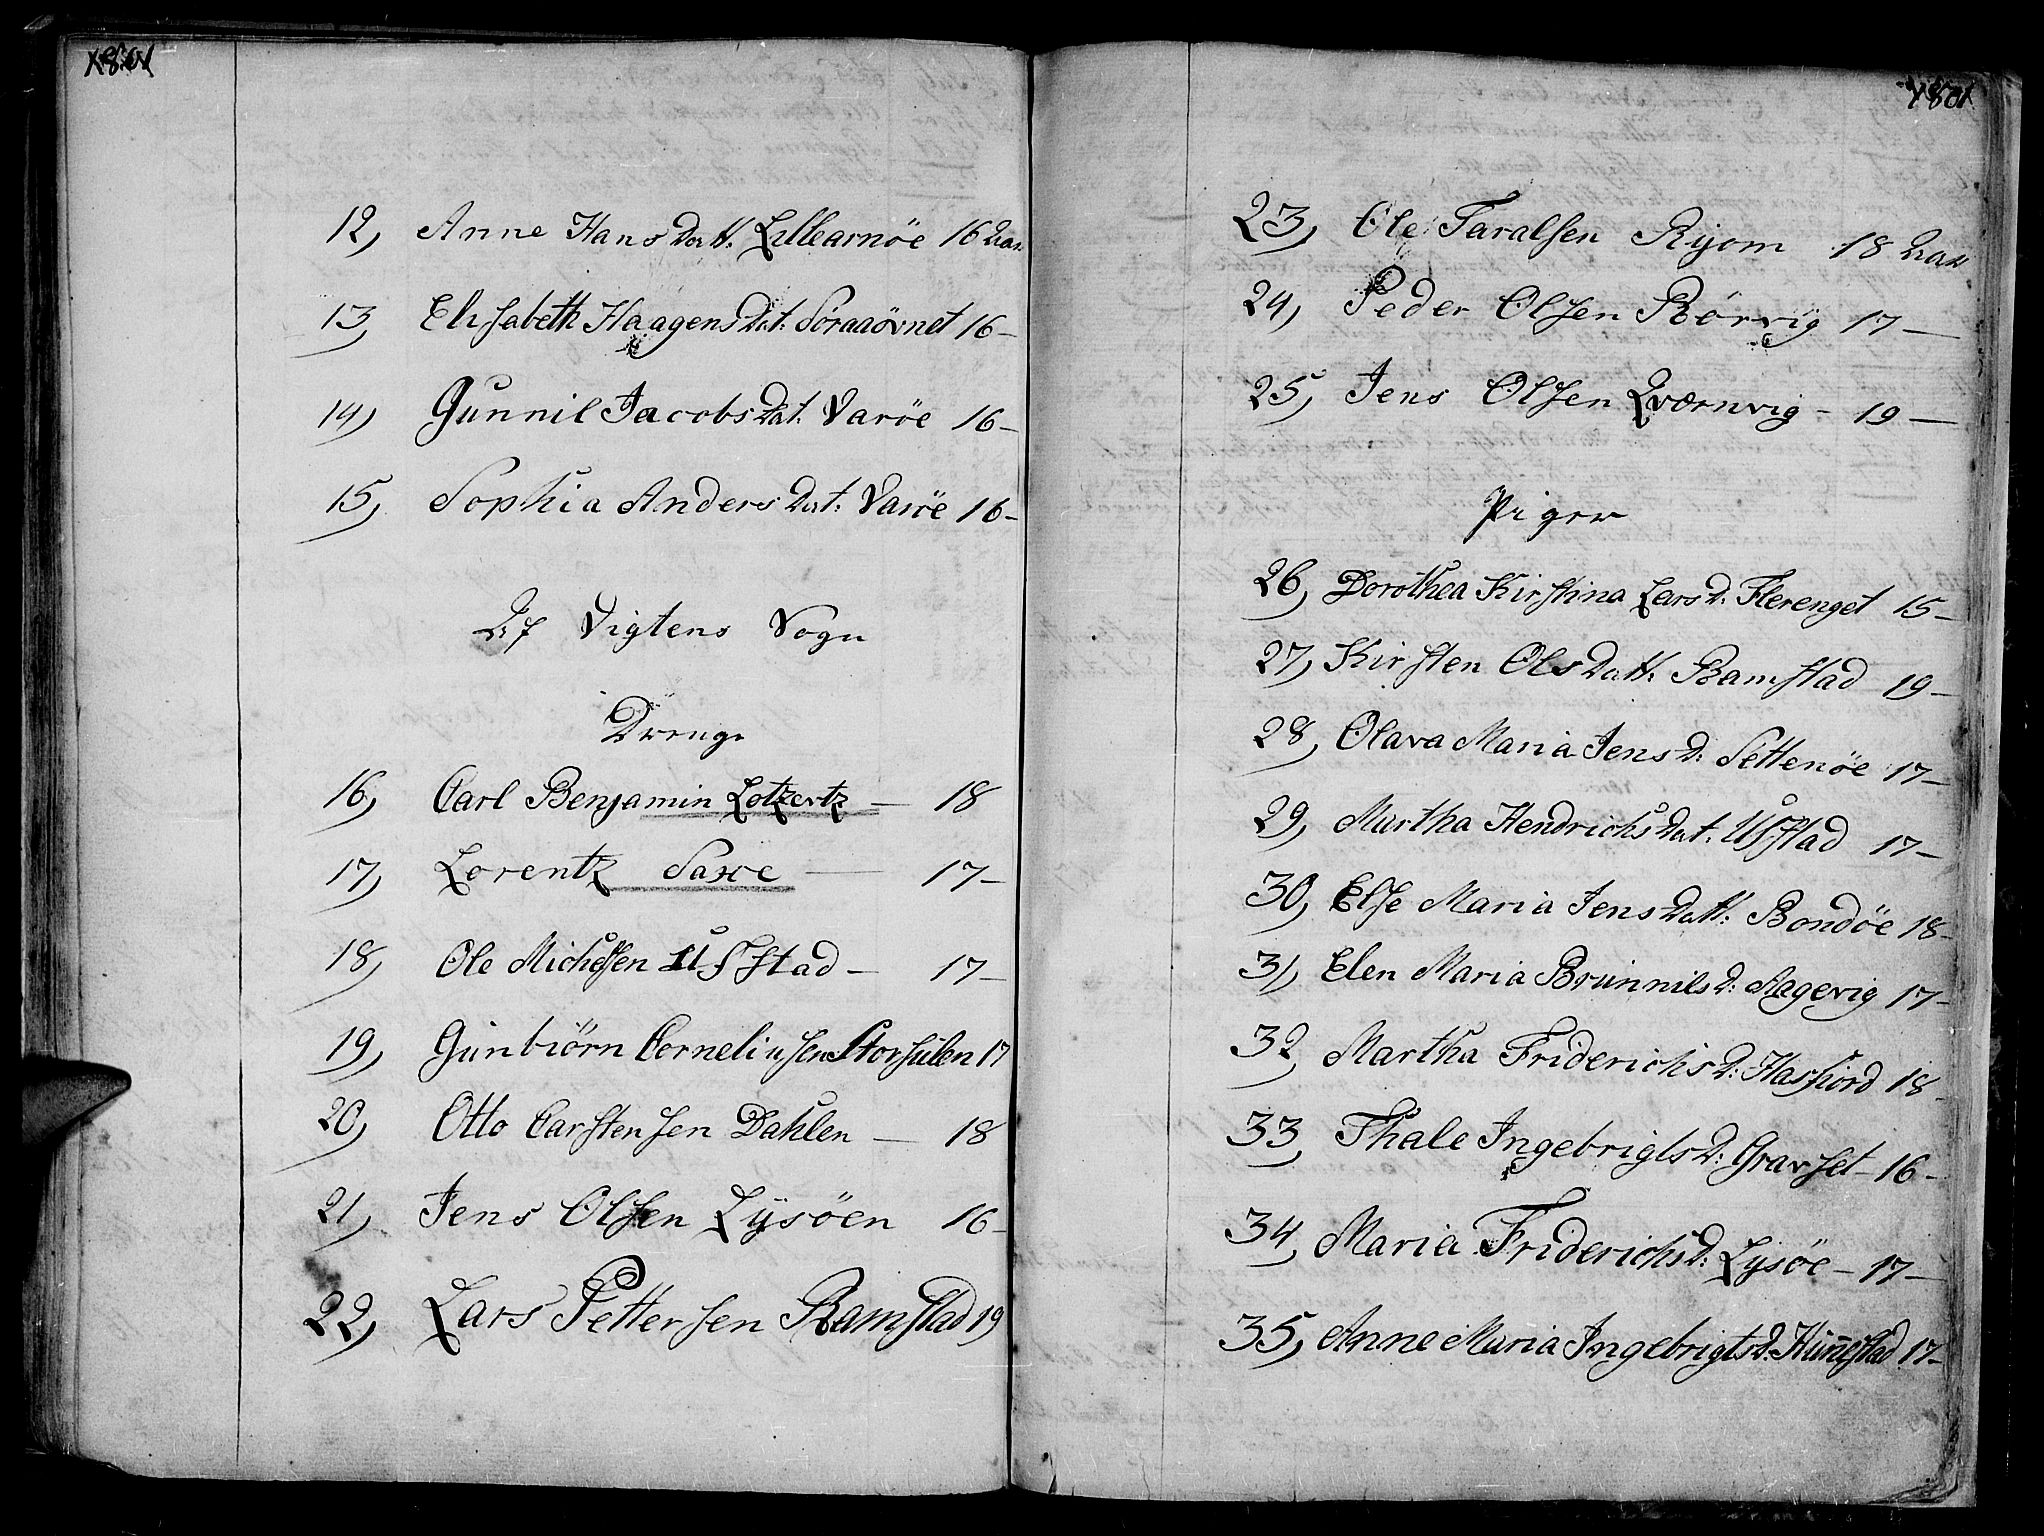 1801
12) Anne Hans Datt. Lillearnöe 16 Aar
13) Elisabeth Haagens Dat: Söraaövnet 16-
14) Gunnil Jacobs Dat: Varöe 16-
15) Sophia Anders Dat: Varöe 16-
Af Vigtens Sogn
Drenge
16) Carl Benjamin Lotzertz — 18
17) Lorentz Saxe — 17-
18) Ole Michelsen Ufstad - 17-
19) Gunbiörn Cornelius sen Storsulen 17
20) Otto Carstensen Dahlen — 18
21) Jens Olsen Lysöen 16-
22) Lars Pettersen Ramstad 19
1801
23) Ole Taralsen Ryom 18 Aar
24) Peder Olsen Rörvig 17 —
25) Jens Olsen Qværnvig - 19 —
Piger
26) Dorothea Kirstina Lars D: Flerenget 15-
27) Kirsten Ols Datt: Ramstad 19-
28) Olava Maria Jens D: Settenöe 17-
29) Martha Hendrichs Dat. Ufstad 17-
30) Else Maria Jens Datt: Bondöe 18-
31) Elen Maria Brunnils D: Aagevig 17-
32) Martha Friderichs D: Hasfiord 18-
33) Thale Ingebrigts D: Gravset - 16-
34) Maria Friderichs D: Lysöe - 17-
35) Anne Maria Ingebrigts D: Hun̄estad 17-